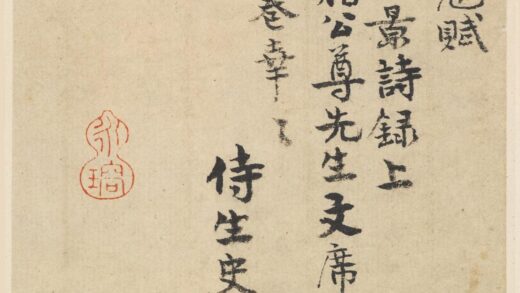 賦
景詩録上
公尊先生文席
幸〻
侍生史
永瑢